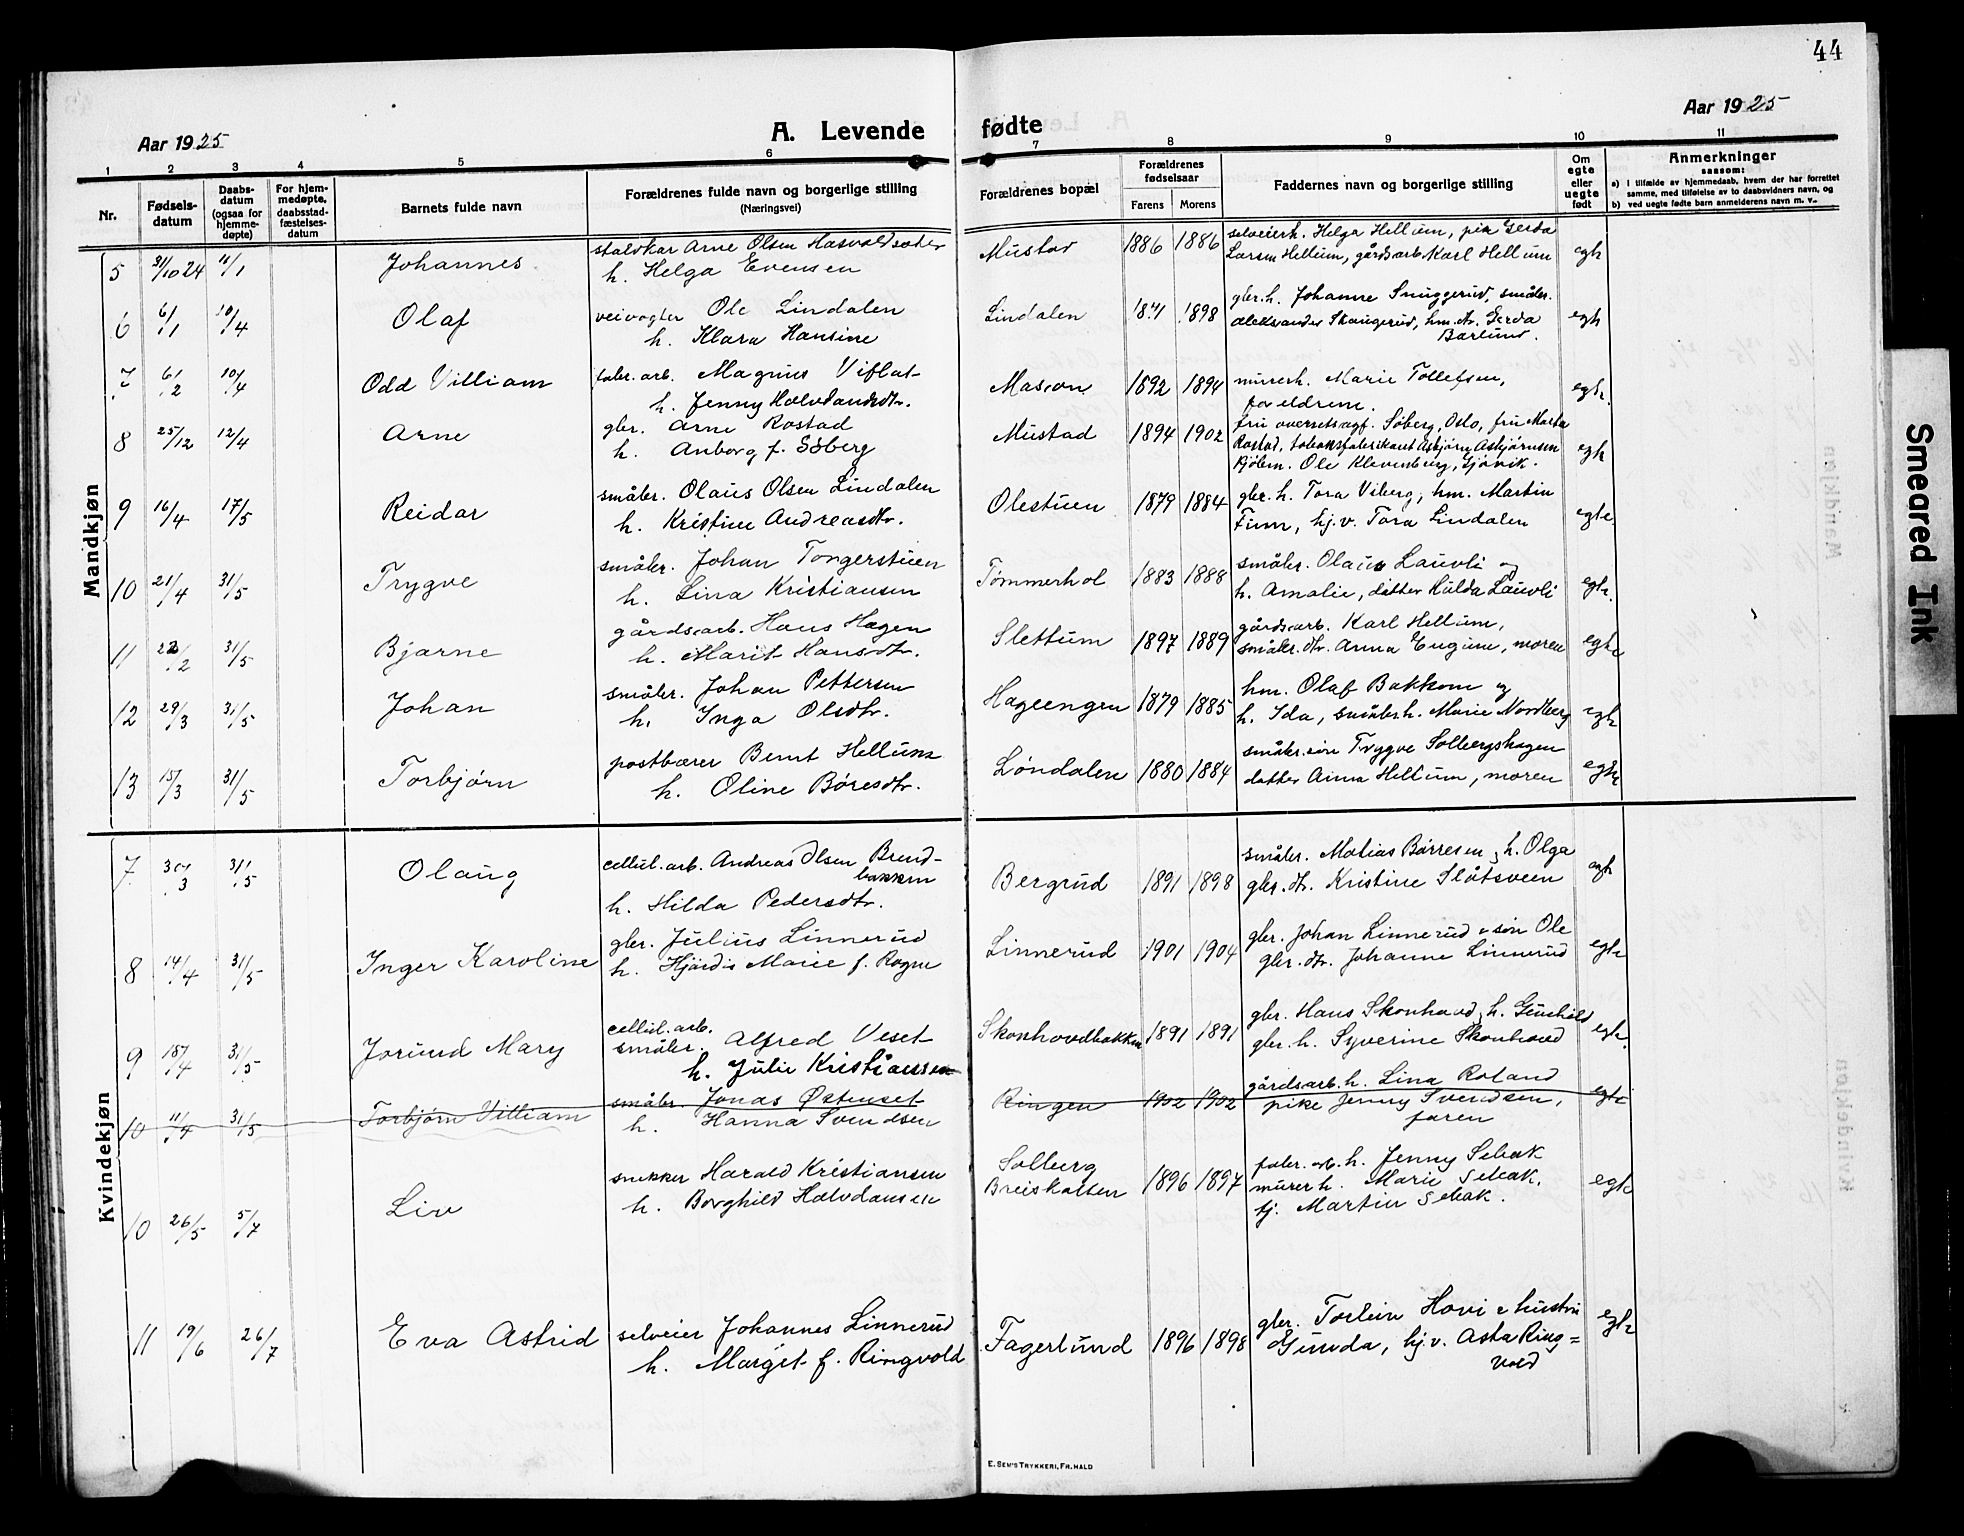 44
Aar 1925
A. Levende fødte
Aar 1925
1 2 3 4 5 6 7 8 9 10 11
Nr.
Fødsels-
datum
Daabs-
datum
(ogsaa for
hjemme-
døpte)
For hjem-
medøpte,
daabsstad-
fæstelses-
datum
Barnets fulde navn
Forældrenes fulde navn og borgerlige stilling
(Næringsvei)
Forældrenes bopæl
Forældrenes
fødselsaar
Farens Morens
Faddernes navn og borgerlig stilling
Om
egte
eller
uegte
født
Anmerkninger
saasom:
a) i tilfælde av hjemmedaab, hvem der har forrettet
samme, med tilføielse av to daabsvidners navn, og
b) ved uegte fødte barn anmelderens navn m. v..
Mandkjøn
5 31/10 24 11/1 Johannes
staldkar Arne Olsen
h. Helga Evensen
Mustad 1886 1886
selveierh. Helga Hellum, pike Gerda
Larsen Hellum, gårdsarb. Karl Hellum
egte
6 6/1 10/4 Olaf
veivogter Ole Lindalen
h. Klara Hansine
Lindalen 1871 1898
gbr.h. Johanne Snuggerud, småbr.
Aleksander Skaugerud, hm.dtr. Gerda
Barlund.
egte
7 6/2 10/4 Odd Villiam
fabr. arb. Magnus Viflat
h. Jenny Halvdansdtr.
1892 1894
murerh. Marie Tollefsen,
foreldrene.
egte.
8 25/12 12/4 Arne
gbr. Arne Rostad
h. Anborg f. Søberg
Mustad 1894 1902
fru overretssagf. Søberg, Oslo, fru Marta
Rostad, tobaksfabrikant Asbjørn Asbjørnsen
Ole Klevenberg, Gjøvik.
egte
9 16/4 17/5 Reidar
småbr. Olaus Olsen Lindalen
h. Kristine Andreasdtr.
Olestuen 1879 1884
gbr. h. Tora Viberg, hm. Martin
hj.v. Tora Lindalen
egte.
10 21/4 31/5 Trygve
småbr. Johan Tongerstuen
h. Lina Kristiansen
Tømmerhol 1883 1888
småbr. Olaus Lauvli og
h. Amalie, datter Hulda Lauvli
egte.
11 22/2 31/5 Bjarne
gårdsarb. Hans Hagen
h. Marit Hansdtr.
Slettum 1897 1889
gårdsarb. Karl Hellum,
småbr. dtr. Anna Engum, moren
egte
12 29/3 31/5 Johan
småbr. Johan Pettersen
h. Inga Olsdtr.
Hageengen 1879 1885
hm. Olaf Bakkom og
h. Ida, småbrh. Marie Nordberg
egte
13 15/3 31/5 Torbjørn
postbærer Bernt Hellum
h. Oline Børesdtr.
Løndalen 1880 1884
småbr.søn Trygve Solbergshagen
datter Anna Hellum, moren
egte
Kvindekjøn
7 30/3 31/5 Olaug
cellul. arb. Andreas Olsen Brend-
bakken
h. Hilda Pedersdtr.
Bergrud 1891 1898
småbr. Matias Børresen, h. Olga
gbr. dtr. Kristine Slåtsveen
egte
8 14/4 31/5 Inger Karoline
gbr. Julius Linnerud
h. Hjørdis Marie f. Rogne
Linnerud 1901 1904
gbr. Johan Linnerud & søn Ole
gbr. dtr. Johanne Linnerud
egte
9 18/4 31/5 Jorund Mary
cellul. arb.
småbr. Alfred Veset
h. Julie Kristiansen
Skonhovdbakken 1891 1891
gbr. Hans Skonhovd, h. Gunhild
gbr. h. Syverine Skonhovd
egte.
10 11/4 31/5 Torbjørn Villiam
småbr. Jonas Østenset
h. Hanna Svendsen
Ringen 1902 1902
gårdsarb. h. Lina Roland
pike Jenny Svendsen,
faren
egte
10 26/5 5/7 Liv
snekker Harald Kristiansen
h. Borghild Halvdansen
Solberg
Breiskallen 1896 1897
fabr. arb. h. Jenny Sebak
murer h. Marie Sebak,
tj. Martin Sebak.
egte
11 19/6 26/7 Eva Astrid
selveier Johannes Linnerud
h. Margit f. Ringvold
Fagerlund 1896 1898
gbr. Torlein Hovi & hustru
Gunda, hj.v. Asta Ring=
vold
egte
E. SEM'S TRYKKERI, FR.HALD
Smeared Ink